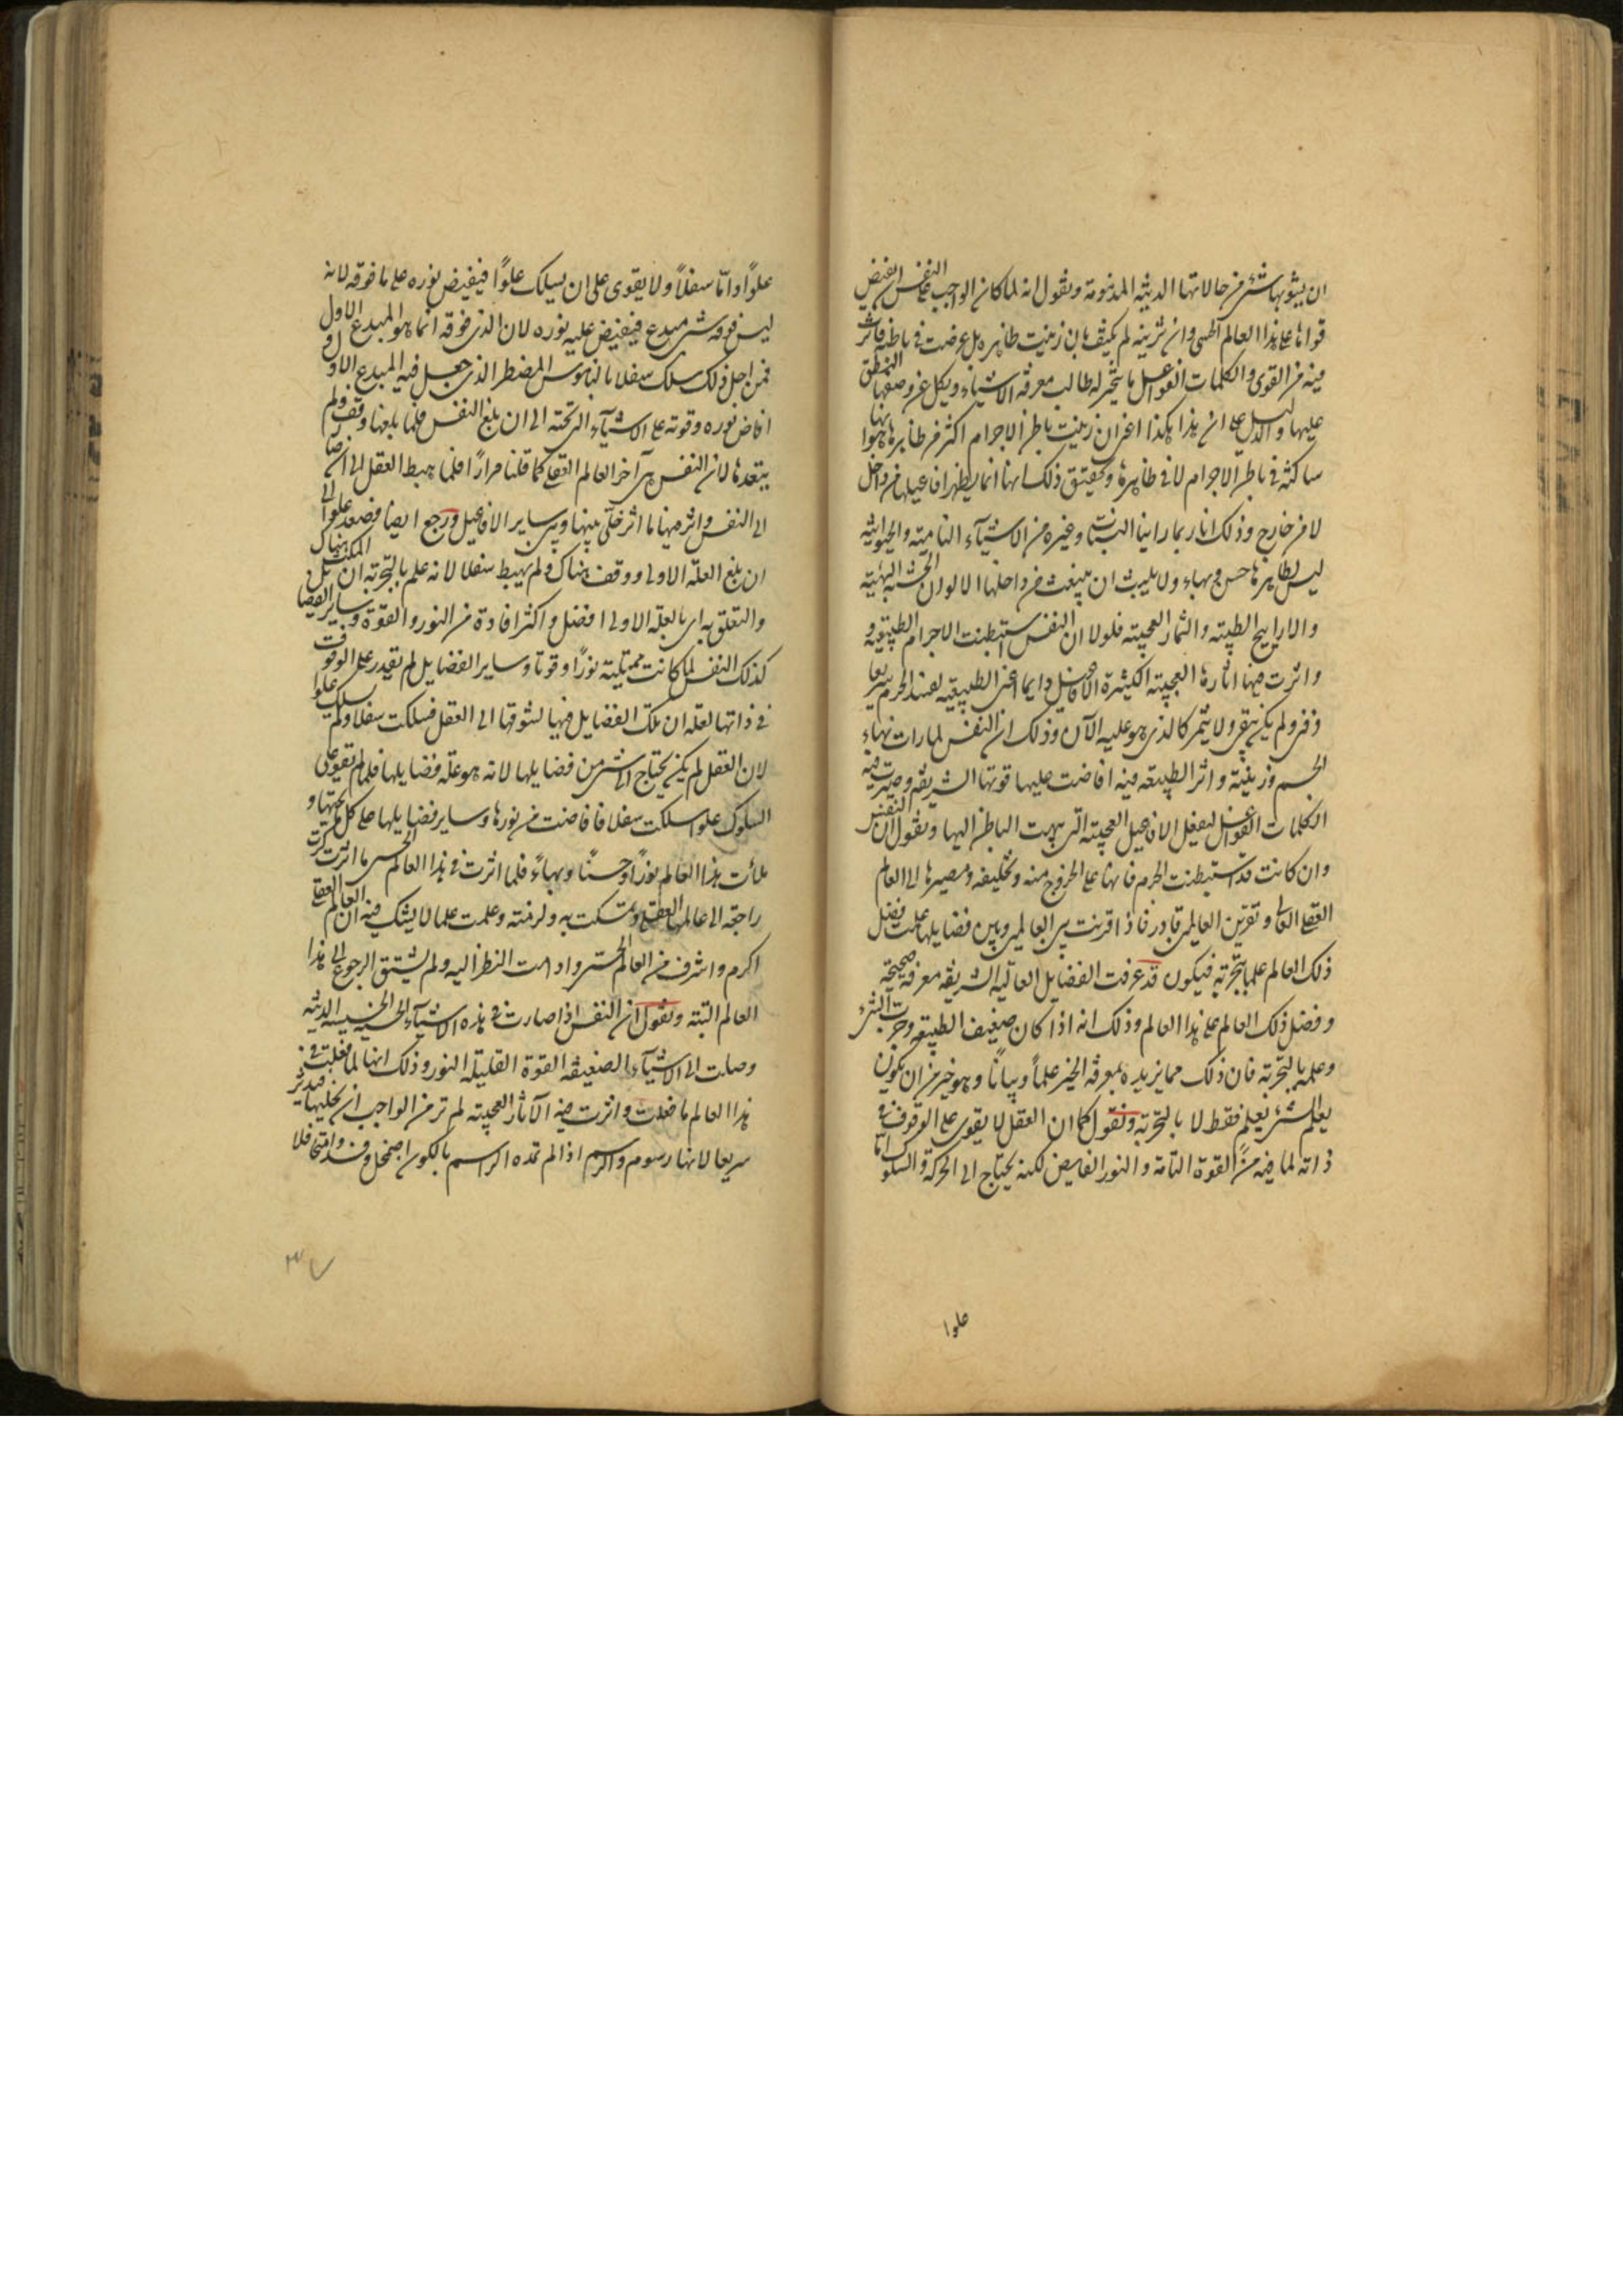 ان يشوبها شئ من حالاتها الدنية المذمومة ونقول انه لما كان الواجب على النفس ان تفيض
قواها على هذا العالم الحسى وان تزينه لم يكيف بان زينت ظاهره بل غرضت فى باطنه فاثر
فيه من القوى والكلمات الفواعل ما يتحير له طالب معرفة الاشياء ويكل عن وصفها المنطق
عليها والدليل على ان هذا هكذا اعنى ان زينت باطن الاجرام اكثر من ظاهرها بانها
ساكنة فى باطن الاجرام لا فى ظاهرها وتحقيق ذلك انها انما يظهر افاعيلها من داخل
لا من خارج وذلك انا ربما راينا النبات وغيره من الاشياء النامية والحيوانية
ليس لظاهرها حسن وبهاء ولا يلبث ان ينبعث من داخلها الالوان الحسنة البهية
والاراييح الطيبة والثمار العجيبة فلولا ان النفس استبطنت الاجرام الطبيعية و
واثرت فيها آثارها العجيبة الكثيرة الافاضل دايما اعنى الطبيعية لفسد الجرم سريعا
وفنى ولم يكن يبقى ولا يثمر كالذى هو عليه الآن وذلك ان النفس لما رات بهاء
الجسم وزينته واثر الطبيعة فيه افاضت عليها قوتها الشريفة وصيرت فيه
الكلمات الفواعل ليفعل الافاعيل العجيبة التى بهت الناظر اليها ونقول ان النفس
وان كانت قد استبطنت الجرم فانها على الخروج منه وتخليفه ومصيرها الى العالم
العقلى العالى وتقرين العالمين قادر فاذا قرنت بين العالمين وبين فضايلها علمت بفضل
ذلك العالم علما بتجربة فيكون قد عرفت الفضايل العالية الشريفة معرفة صحيحة
وفضل ذلك العالم على هذا العالم وذلك انه اذا كان ضعيف الطبيعة وجربت الشئ
وعلمه بالتجربة فان ذلك مما يزيده بمعرفة الخير علماً وبياناً وهو خير من ان يكون
يعلم الشئ بعلم فقط لا بالتجربة ونقول كما ان العقل لا يقوى على الوقوف فى
ذاته لما فيه من القوة التامة والنور الفايض لكنه يحتاج الى الحركة والسلوك اما
علوا
علوًا واما سفلاً ولا يقوى على ان يسلك علوًا فيفيض نوره على ما فوقه لانه
ليس فوقه شئ مبدع فيفيض عليه نوره لان الذى فوقه انما هو المبدع الاول
فمن اجل ذلك سلك سفلا بالناموس المضطر الذى جعل فيه المبدع الاول و
افاض نوره وقوته على الاشياء التى تحته الى ان بلغ النفس فلما بلغها وقف ولم
يتعدها لان النفس هى آخر العالم العقلى كما قلنا مراراً فلما هبط العقل الى ان صار
الى النفس واثر فيها ما اثر خلى بينها وبين ساير الافاعيل ورجع ايضا فصعد علوا الى
ان بلغ العلة الاولى ووقف هناك ولم يهبط سفلا لانه علم بالتجربة ان المكث هناك
والتعلق به اى بالعلة الاولى افضل واكثر افادة من النور والقوة وساير الفضايل
كذلك النفس لما كانت ممتلية نوراً وقوتا وساير الفضايل لم يقدر على الوقوف
فى ذاتها لعلة ان تلك الفضايل فيها لشوقها الى العقل فسلكت سفلا ولم يسلك علوا
لان العقل لم يكن يحتاج الى شئ من فضايلها لانه هو علة فضايلها فلما لم تقوى على
السلوك علوا سلكت سفلا فافاضت من نورها وساير فضايلها على كل ما تحتها و
ملأت هذا العالم نوراً وحسناً وبهاءً فلما اثرت فى هذا العالم الحسى ما اثرت كرت
راجعة الى عالمها العقلى وتمسكت به ولزمته وعلمت علما لا يشك فيه ان العالم العقلى
اكرم واشرف من العالم الحسى وادامت النظر اليه ولم يشتق الرجوع الى هذا
العالم البتة ونقول ان النفس اذا صارت فى هذه الاشياء الحسية الخسيسة الدنية
وصلت الى الاشياء الضعيفة القوة القليلة النور وذلك انها لما فعلت فى
هذا العالم ما فعلت واثرت فيه الآثار العجيبة لم تر من الواجب ان تخليها فيدثر
سريعا لانها رسوم والرسم اذا لم تمده الراسم بالكون اضمحل وفسد وامتحى فلا